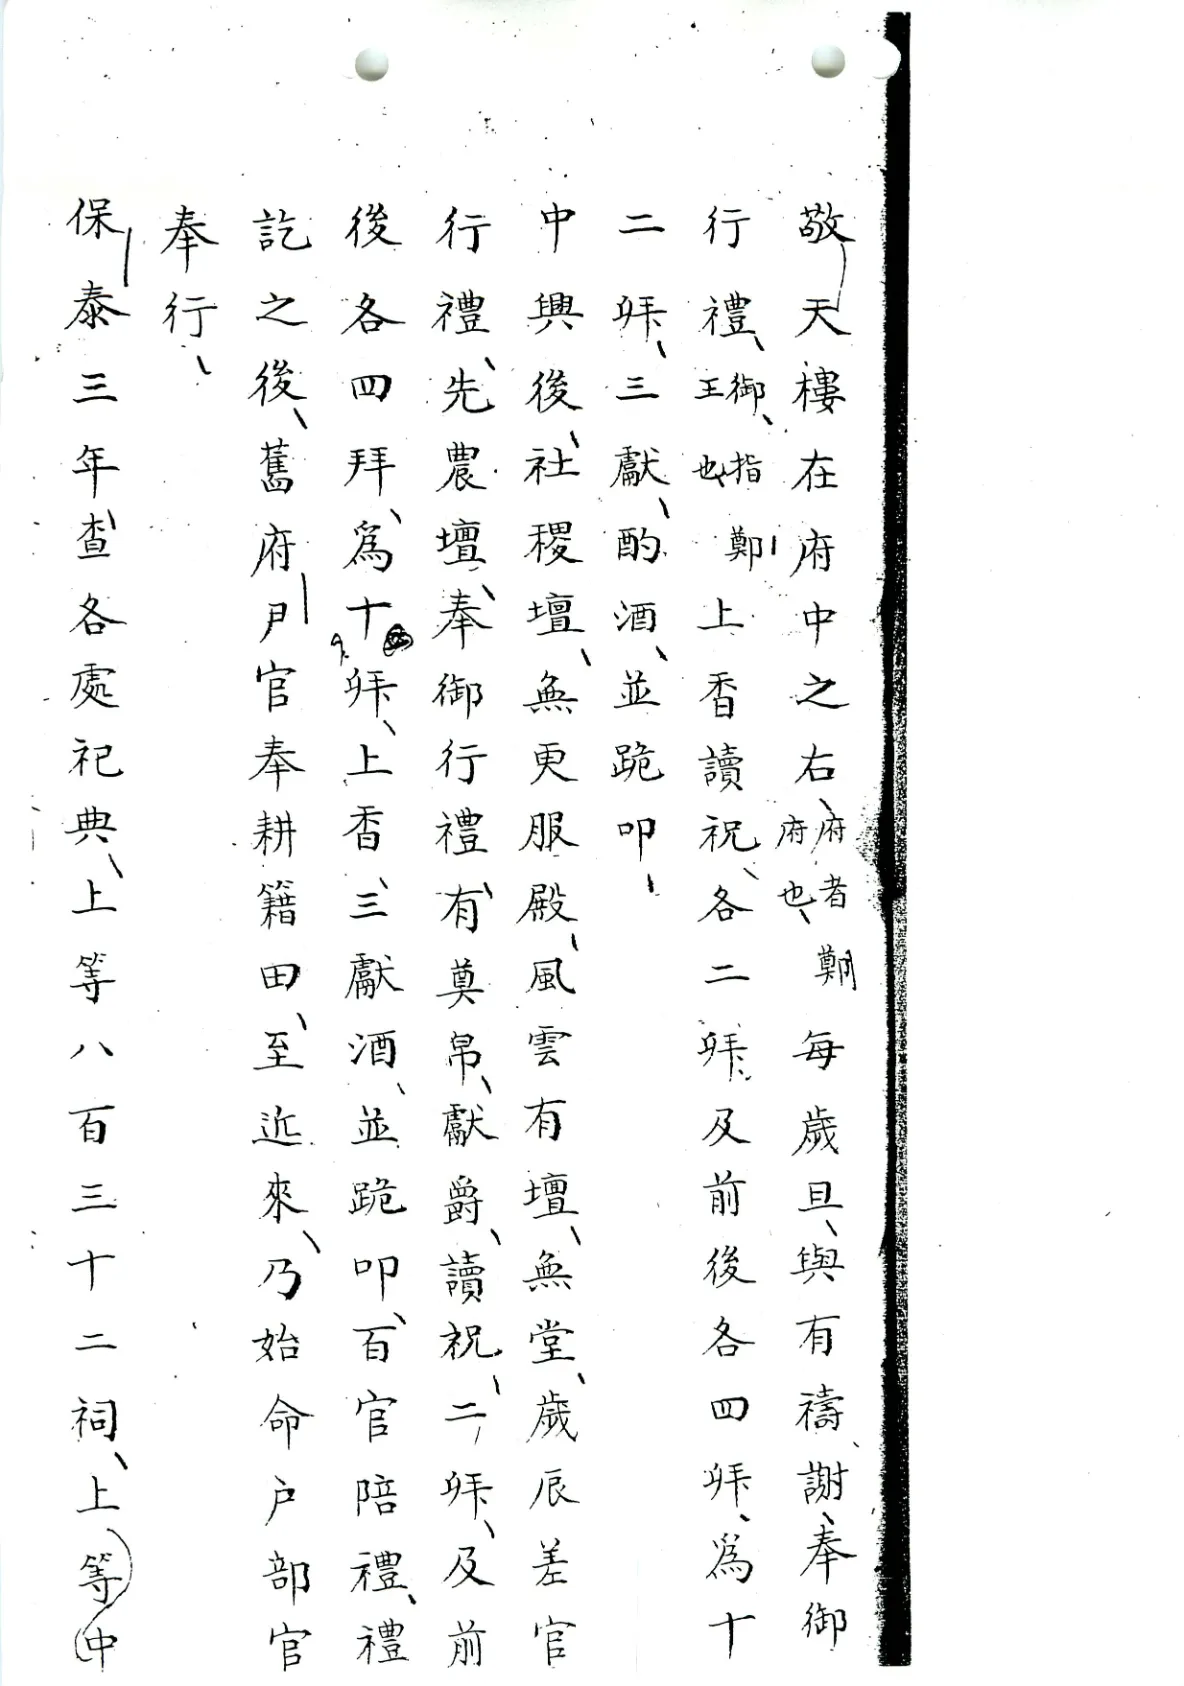 敬天樓在府中之右、府者鄭府也、每歲旦、與有禱、謝、奉御
行禮、御、指鄭王也、上香讀祝、各二拜、及前後各四拜、爲十
二拜、三獻、酌酒、並跪叩、
中興後、社稷壇、無更服殿、風雲有壇、無堂、歲辰差官
行禮、先農壇、奉御行禮、有奠帛、獻爵、讀祝、二拜、及前
後各四拜、爲十拜、上香、三獻酒、並跪叩、百官陪禮、禮
訖之後、舊府尹官奉耕籍田、至近來、乃始命户部官
奉行、
保泰三年、查各處祀典、上等八百三十二祠、上等中